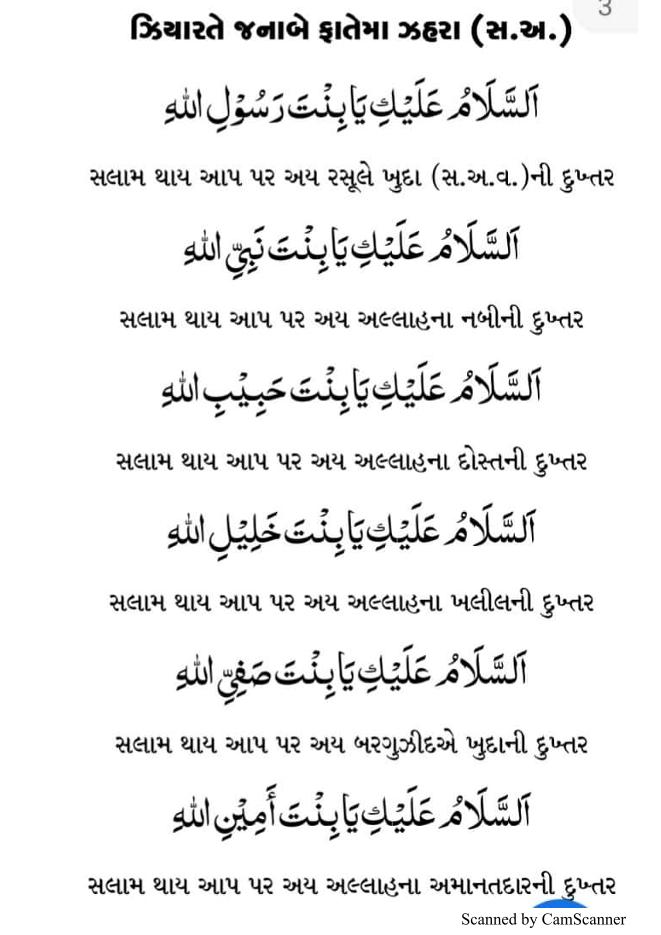 3
ઝિયારતે જનાબે ફાતેમા ઝહરા (સ.અ.)
اَلسَّلَامُ عَلَيْكِ يَا بِنْتَ رَسُوْلِ اللهِ
સલામ થાય આપ પર અય રસૂલે ખુદા (સ.અ.વ.)ની દુખ્તર
اَلسَّلَامُ عَلَيْكِ يَا بِنْتَ نَبِيِّ اللهِ
સલામ થાય આપ પર અય અલ્લાહના નબીની દુખ્તર
اَلسَّلَامُ عَلَيْكِ يَا بِنْتَ حَبِيْبِ اللهِ
સલામ થાય આપ પર અય અલ્લાહના દોસ્તની દુખ્તર
اَلسَّلَامُ عَلَيْكِ يَا بِنْتَ خَلِيْلِ اللهِ
સલામ થાય આપ પર અય અલ્લાહના ખલીલની દુખ્તર
اَلسَّلَامُ عَلَيْكِ يَا بِنْتَ صَفِيِّ اللهِ
સલામ થાય આપ પર અય બરગુઝીદએ ખુદાની દુખ્તર
اَلسَّلَامُ عَلَيْكِ يَا بِنْتَ أَمِيْنِ اللهِ
સલામ થાય આપ પર અય અલ્લાહના અમાનતદારની દુખ્તર
Scanned by CamScanner